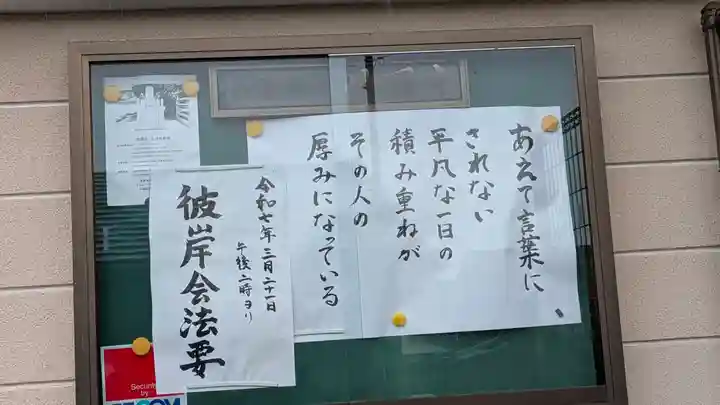 あえて言葉に
されない
平凡な一日の
積み重ねが
その人の
厚みになっている
令和七年三月二十一日
午後二時ヨリ
彼岸会法要
Security
by
SECOM